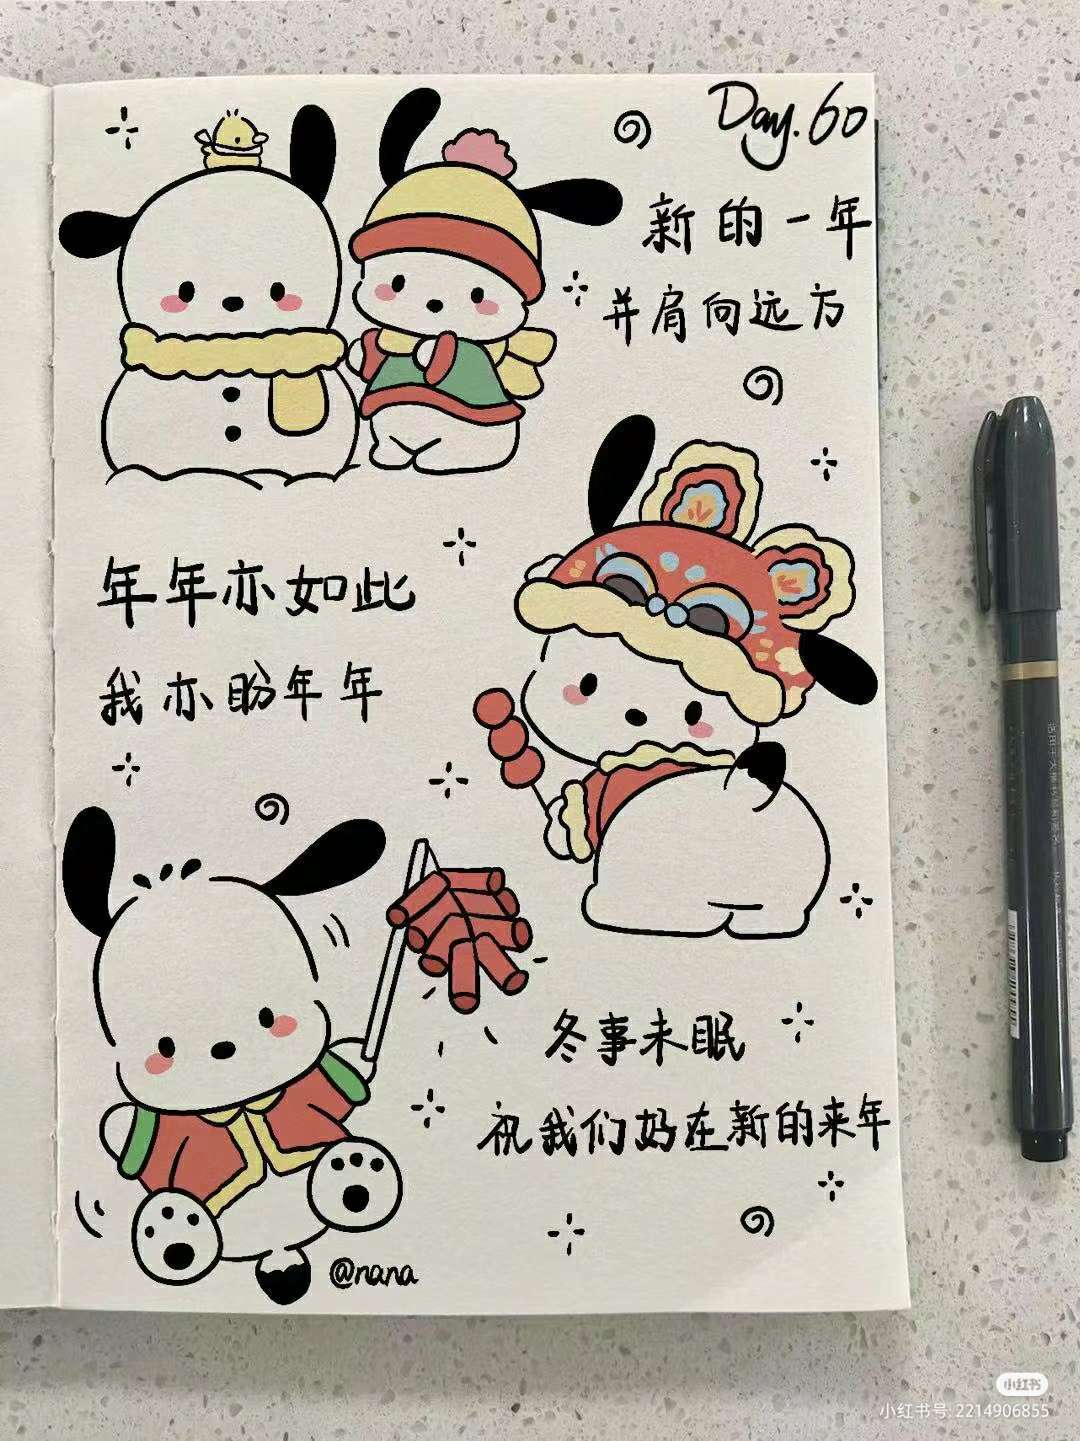 Day.60
新的一年
并肩向远方
年年亦如此
我亦盼年年
冬事未眠
祝我们好在新的来年
@nana
小红书
小红书号: 2214906855